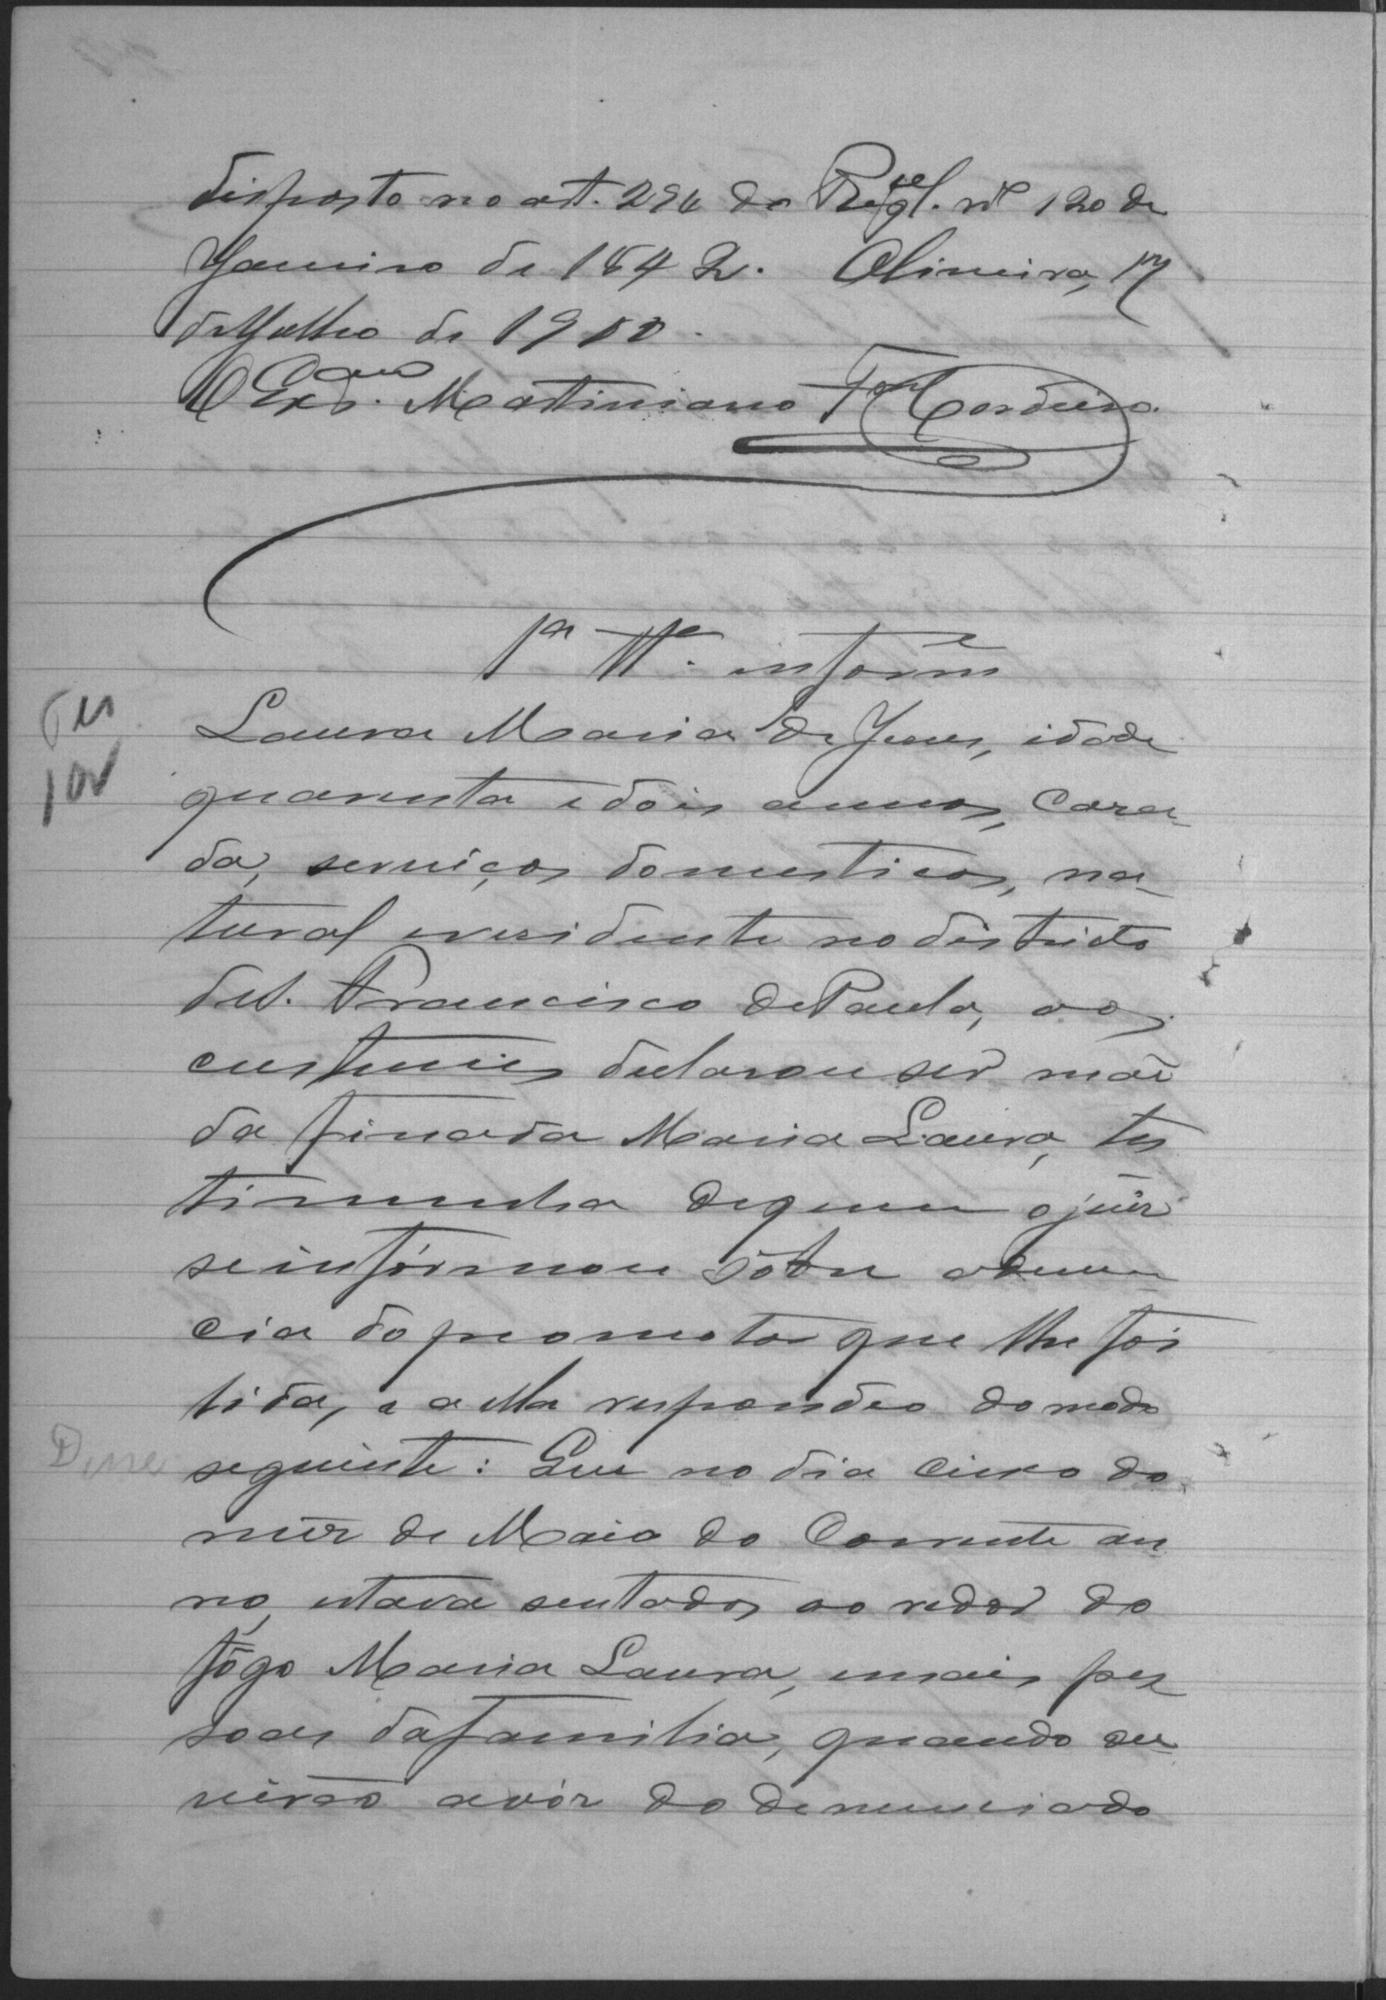 disposto no art. 294 do Regl. nº 120 de
Janeiro de 1842. Oliveira, 17
de Julho de 1900.
O Escram. Martiniano Fco Cordeiro.
1ª Ttª. inform
Laura Maria de Jesus, idade
quarenta e dois annos, casa-
da, serviços domesticos, na-
tural e residente no districto
de S. Francisco de Paula, aos
custumes declarou ser mãi
da finada Maria Laura, tes
timunha de quem o juiz
se informou sôbre a denun
cia do promotor que lhe foi
lida, e a ella respondeo do modo
seguinte: Que no dia cinco do
mêz de Maio do corrente an
no, estava sentados ao redor do
fôgo Maria Laura, e mais pes
soas da familia, quando ou-
virão a voz do denunciado
Disse